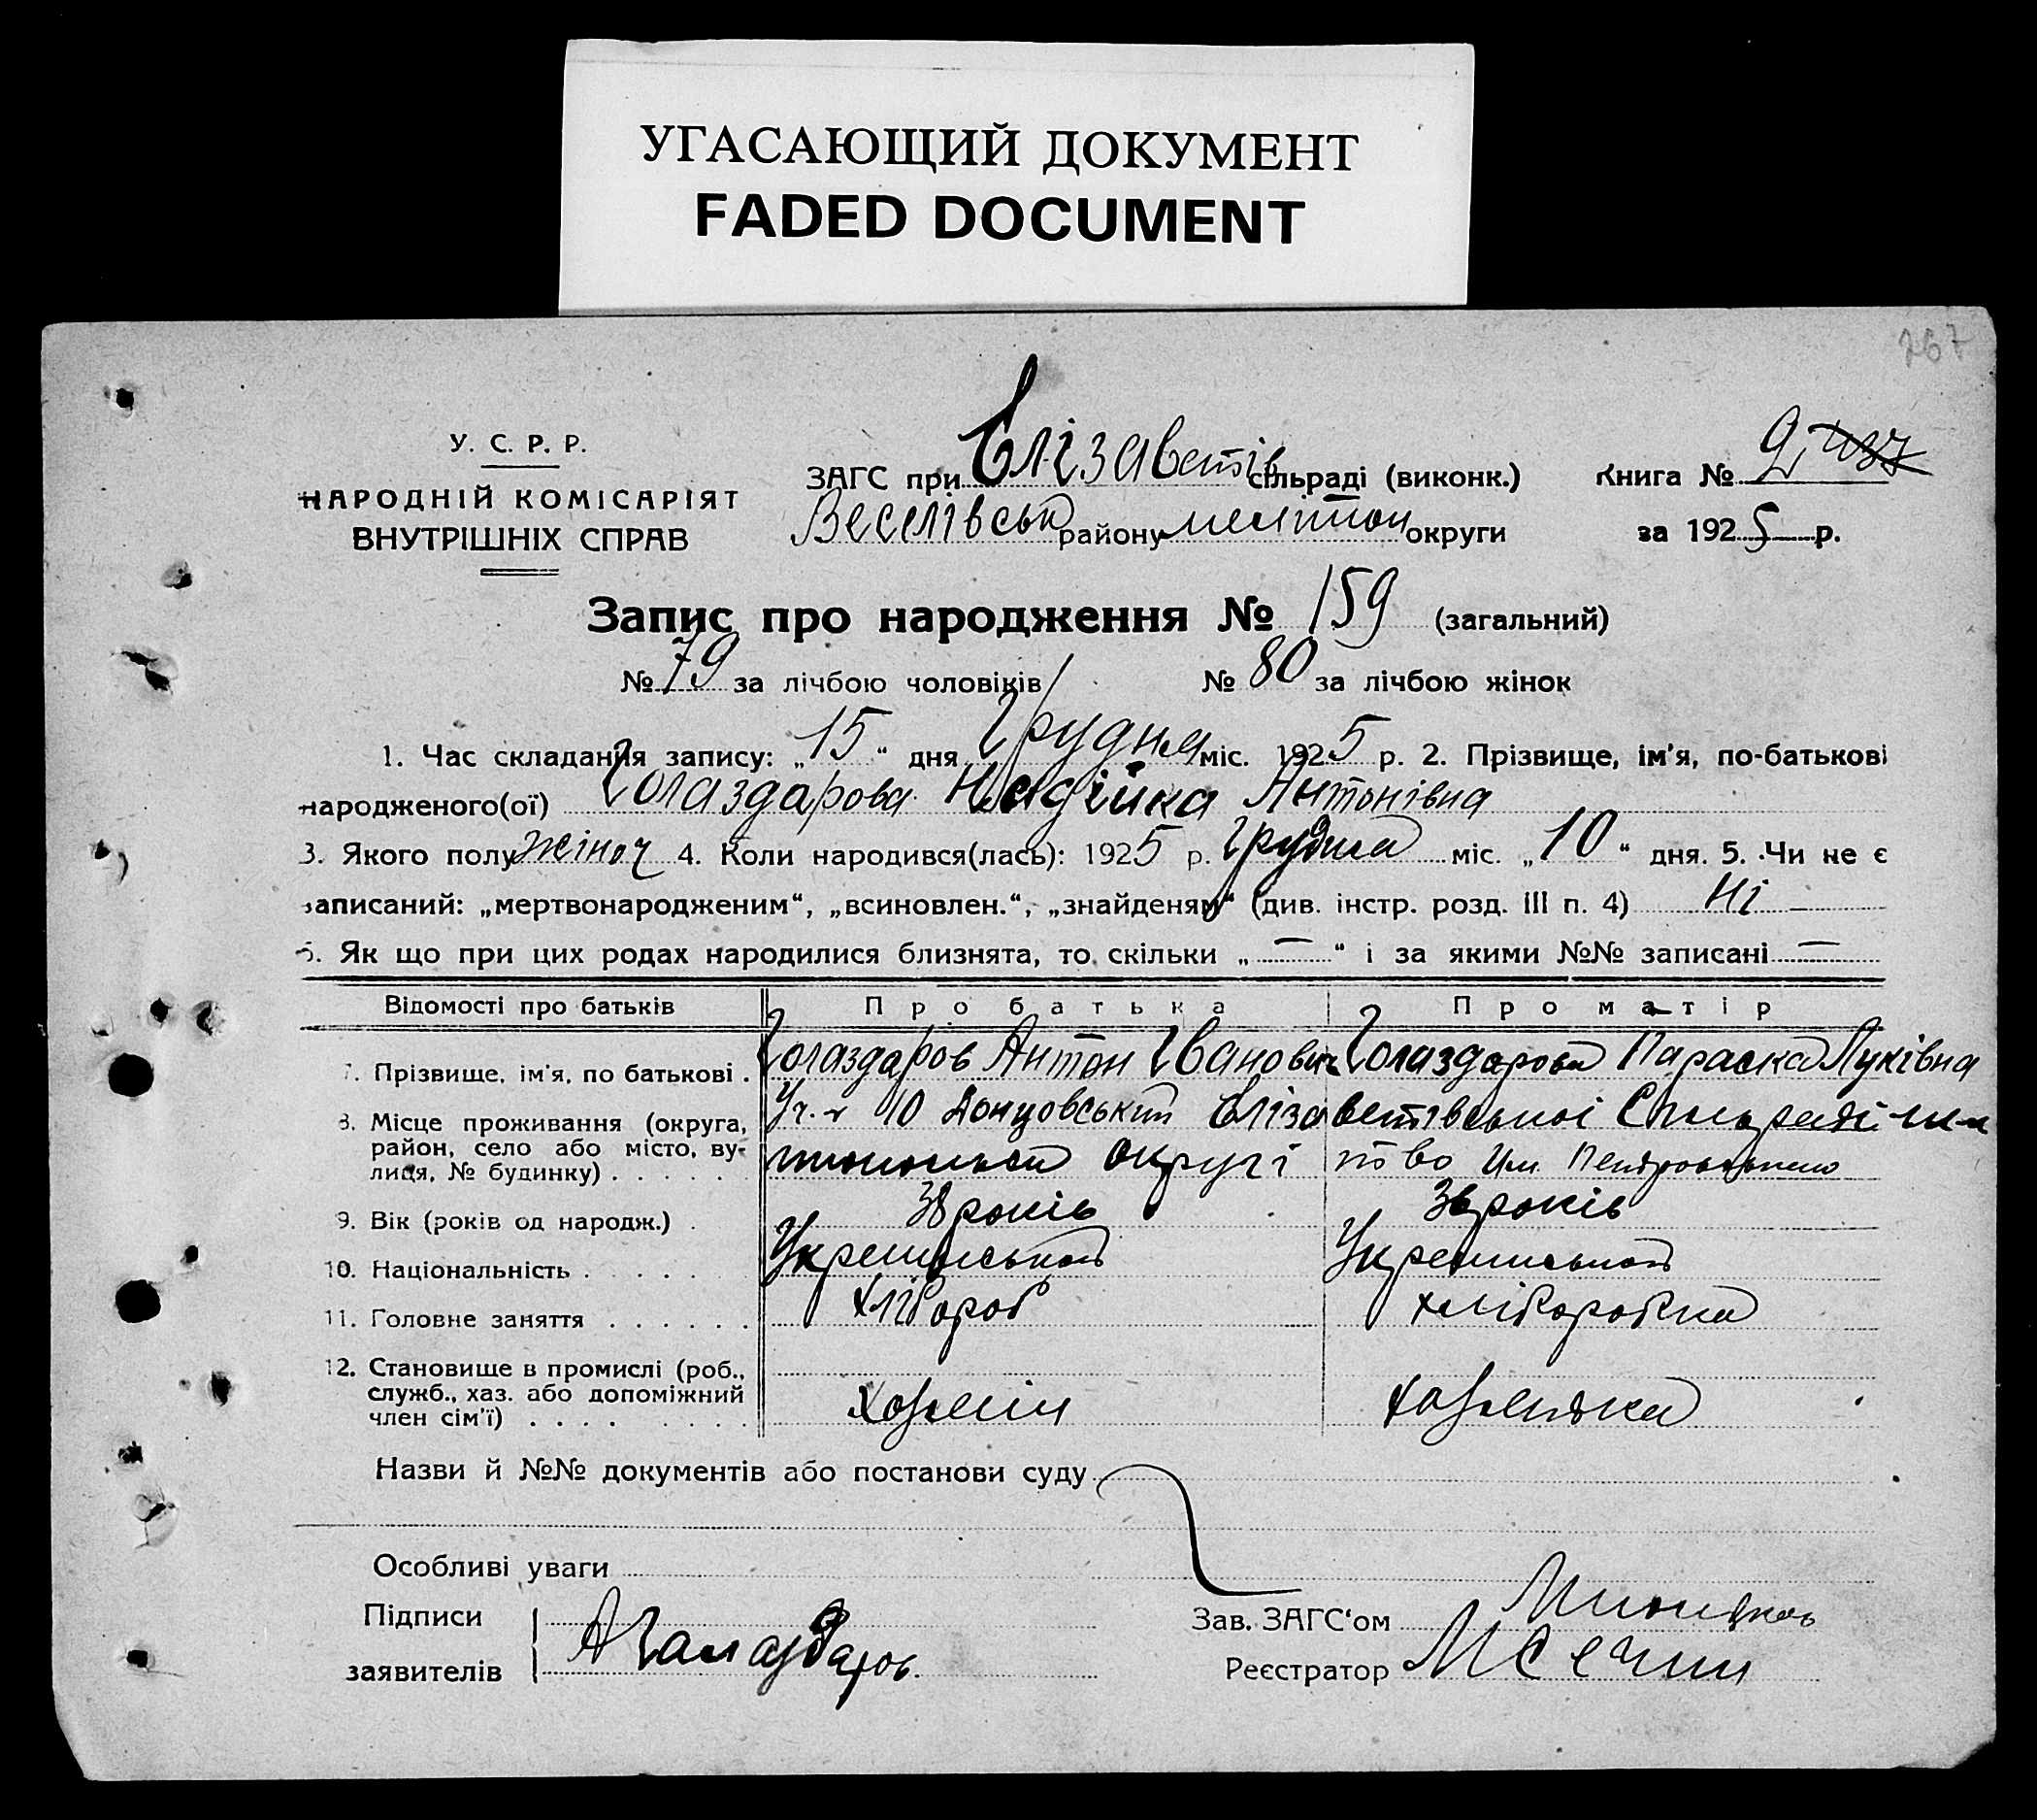 УГАСАЮЩИЙ ДОКУМЕНТ
FADED DOCUMENT
267
У. С. Р. Р.
НАРОДНІЙ КОМІСАРІЯТ
ВНУТРІШНІХ СПРАВ
ЗАГС при Єлізаветів сільраді (виконк.)
Веселівськ району мелітоп округи
Книга № 2
за 1925 р.
Запис про народження № 159 (загальний)
№ 79 за лічбою чоловіків № 80 за лічбою жінок
1. Час складання запису: „15“ дня Грудня міс. 1925 р. 2. Прізвище, ім'я, по-батькові
народженого(ої) Голаздарова Надійка Антонівна
3. Якого полу жіноч 4. Коли народився(лась): 1925 р. Грудня міс. „10“ дня. 5. Чи не є
записаний: „мертвонародженим“, „всиновлен.“, „знайденям“ (див. інстр. розд. III п. 4) Ні
6. Як що при цих родах народилися близнята, то скільки „—“ і за якими №№ записані —
Відомості про батьків Про батька Про матір
7. Прізвище, ім'я, по батькові . Голаздаров Антон Іванович Голаздарова Параска Луківна
8. Місце проживання (округа, район, село або місто, вулиця, № будинку) . . . . . . Уч. 10 Донцовський Єлізаветівської округі Им. Петровського
9. Вік (років од народж.) . 38 років 36 років
10. Національність . . . . . .
11. Головне заняття . . . . . . хлібороб хлiборобка
12. Становище в промислі (роб., служб., хаз. або допоміжний член сім'ї) . . . . . . . . хазяїн хазяйка
Назви й №№ документів або постанови суду
Особливі уваги
Підписи
заявителів А Галаздаров.
Зав. ЗАГС‘ом
Реєстратор